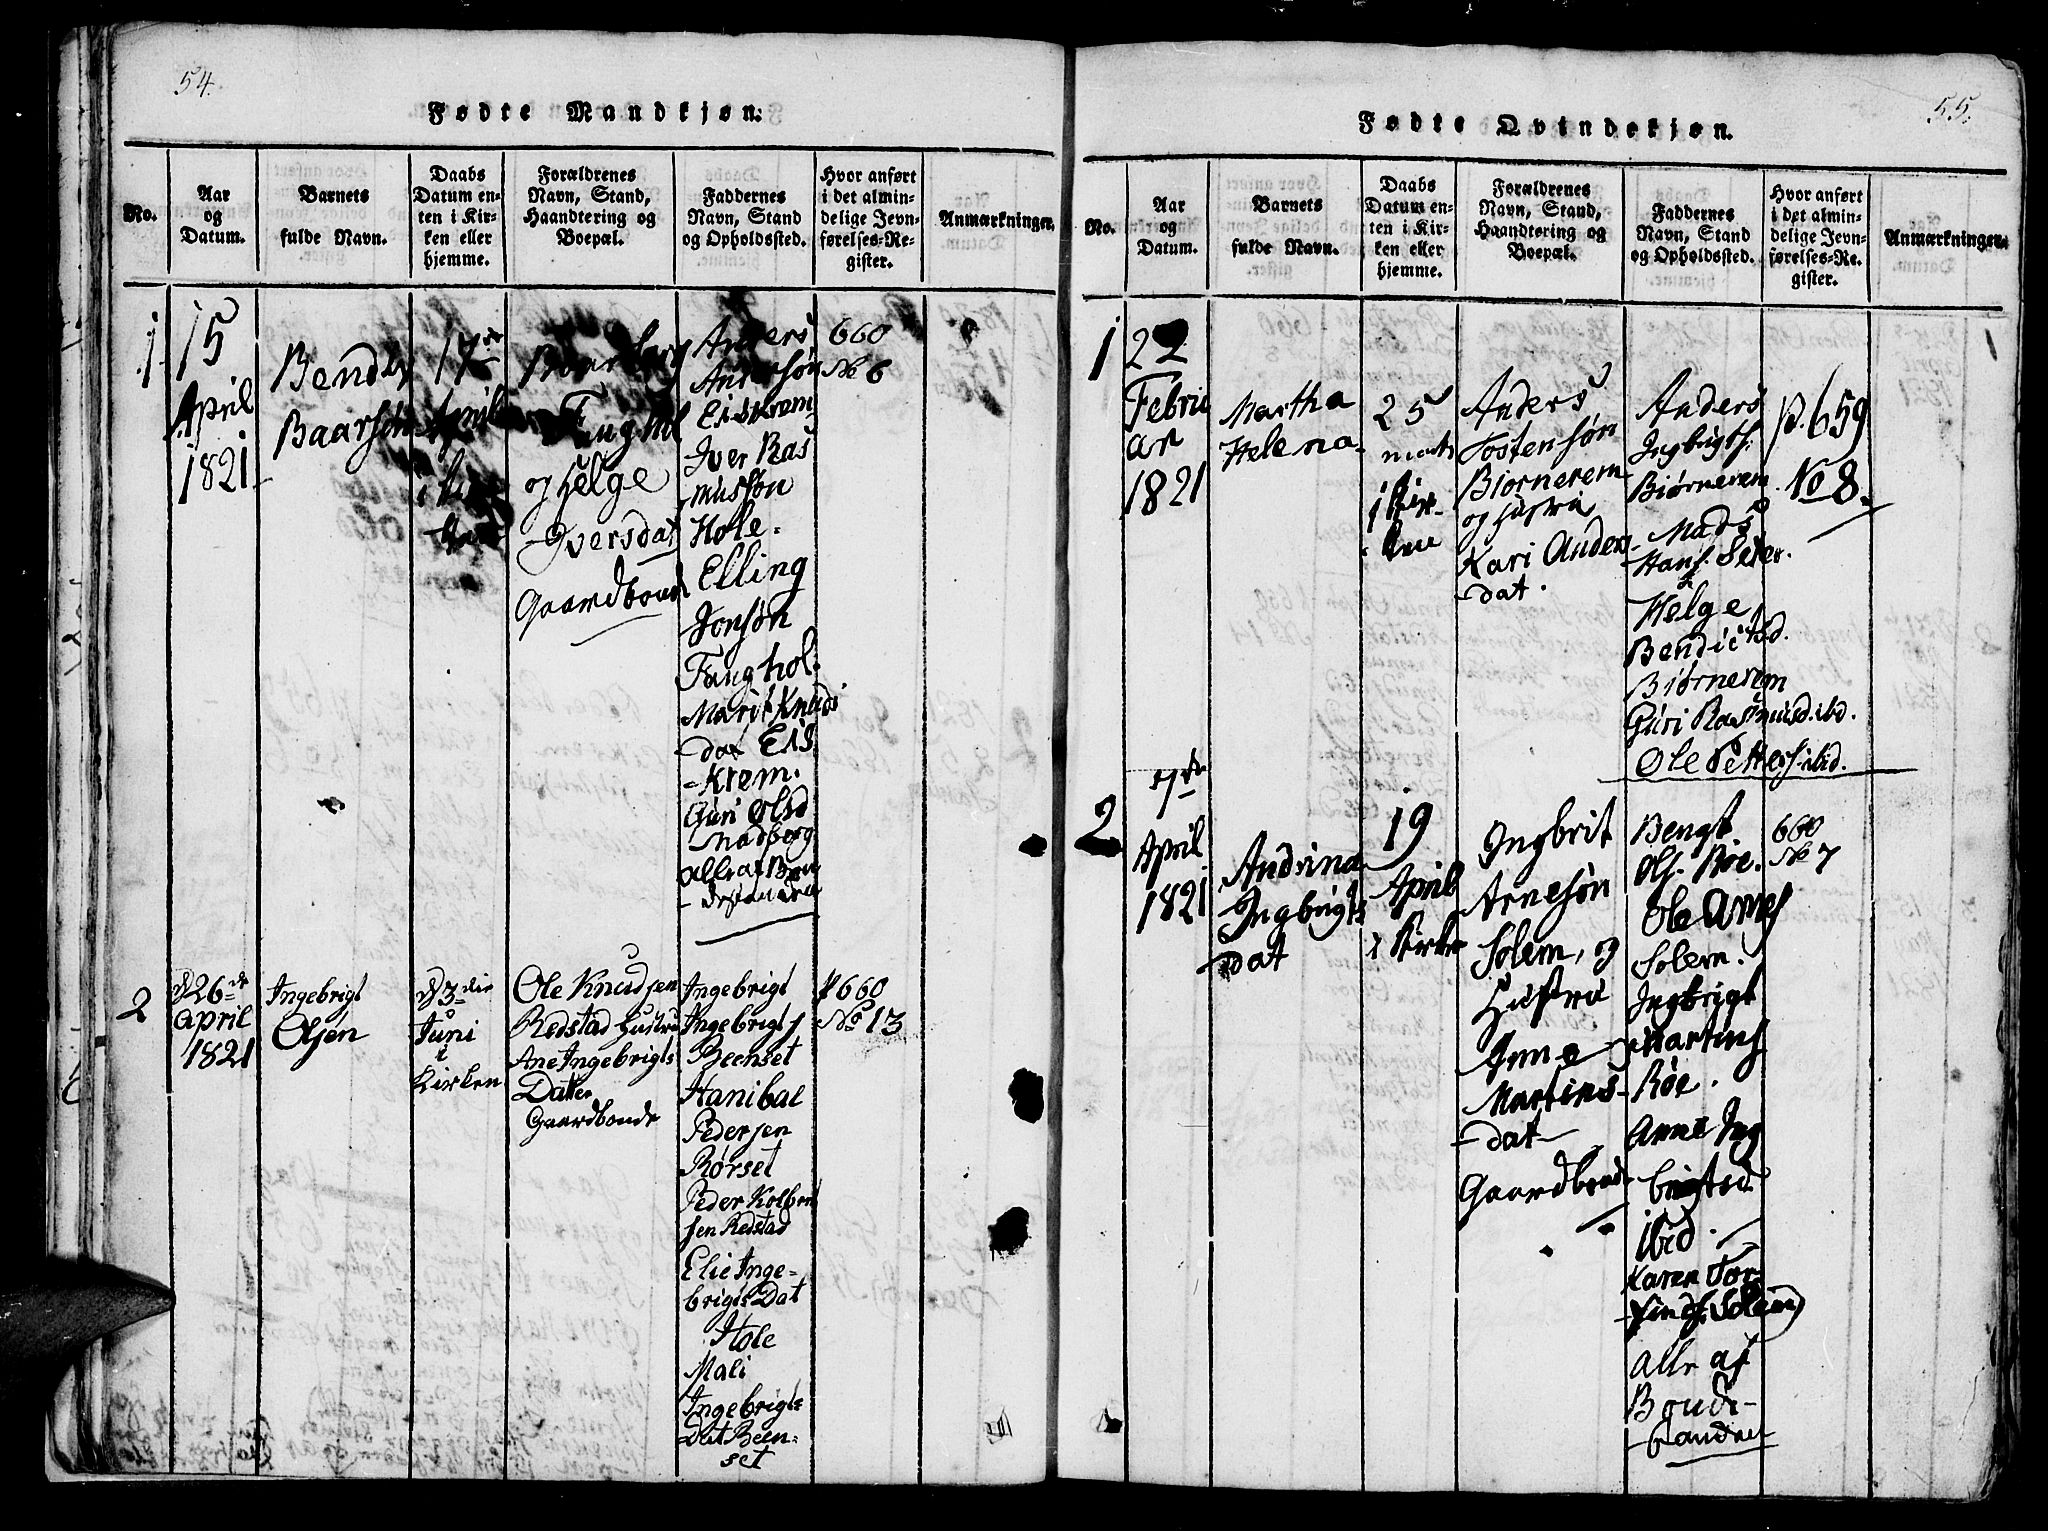 54.
Fødte Mandkjøn.
No.
Aar
og
Datum.
Barnets
fulde Navn.
Daabs
Datum en-
ten i Kir-
ken eller
hjemme.
Forældrenes
Navn, Stand,
Haandtering og
Boepæl.
Faddernes
Navn, Stand
og Opholdssted.
Hvor anført
i det almin-
delige Jevn-
førelses-Re-
gister.
Anmærkninger.
1
15
April
1821
Baarsøn
17de
April
i
og Helge
Iversdat
Gaardbond
Anders
Andersøn
Eiskrem
Iver Ras
mussøn
Hole.
Elling
Jonsøn
Fanghol
Marit Knuds
dat Eis
krem.
Guri Olsd
Nadberg
alle af Bon
destanden
660
No 6
2
d 26de
April
1821
Ingebrigt
Olsen
d 3die
Juni
i
Kirken
Ole Knudsen
Redstad Hustru
Ane Ingebrigts
Datter
Gaardbonde
Ingebrigt
Ingebrigts
Beenset
Hanibal
Pedersen
Rørset
Peder Kolben
sen Redstad
Elie Inge-
brigts Dat
Hole
Mali
Ingebrigts
Dat Been-
set
P 660
No 13
55.
Fødte Qvindekjøn.
No.
Aar
og
Datum.
Barnets
fulde Navn.
Daabs
Datum en-
ten i Kir-
ken eller
hjemme.
Forældrenes
Navn, Stand,
Haandtering og
Boepæl.
Faddernes
Navn, Stand
og Opholdssted.
Hvor anført
i det almin-
delige Jevn-
førelses-Re-
gister.
Anmærkninger.
1
22
Febru
ar
1821
Martha
Helena
25
marts
i Kir-
ken
Anders
Tostensøn
Biørnerem
og Hustru
Kari Anders
dat.
Anders
Ingbrigts.
Biørnerem
Mads
Hans. Seter.
Helge
Bendictsd.
Biørnerem
Guri Rasmusd. ibd.
Ole Petters. ibid.
p. 659
No 8.
2
7de
April
1821
Andrina
Ingbrigts
dat
19
April
i Kirke
Ingbrit
Arnesøn
Solem, og
Hustru
Anne
Martins
dat
Gaardbond
Bengt
Ols. Røe.
Ole Arnes
Solem.
Ingbrigt
Martins
Røe.
Anne Ing
brigtsd.
ibd.
Karen Tor
find. Solem
alle af
Bonde-
standen
660
No 7